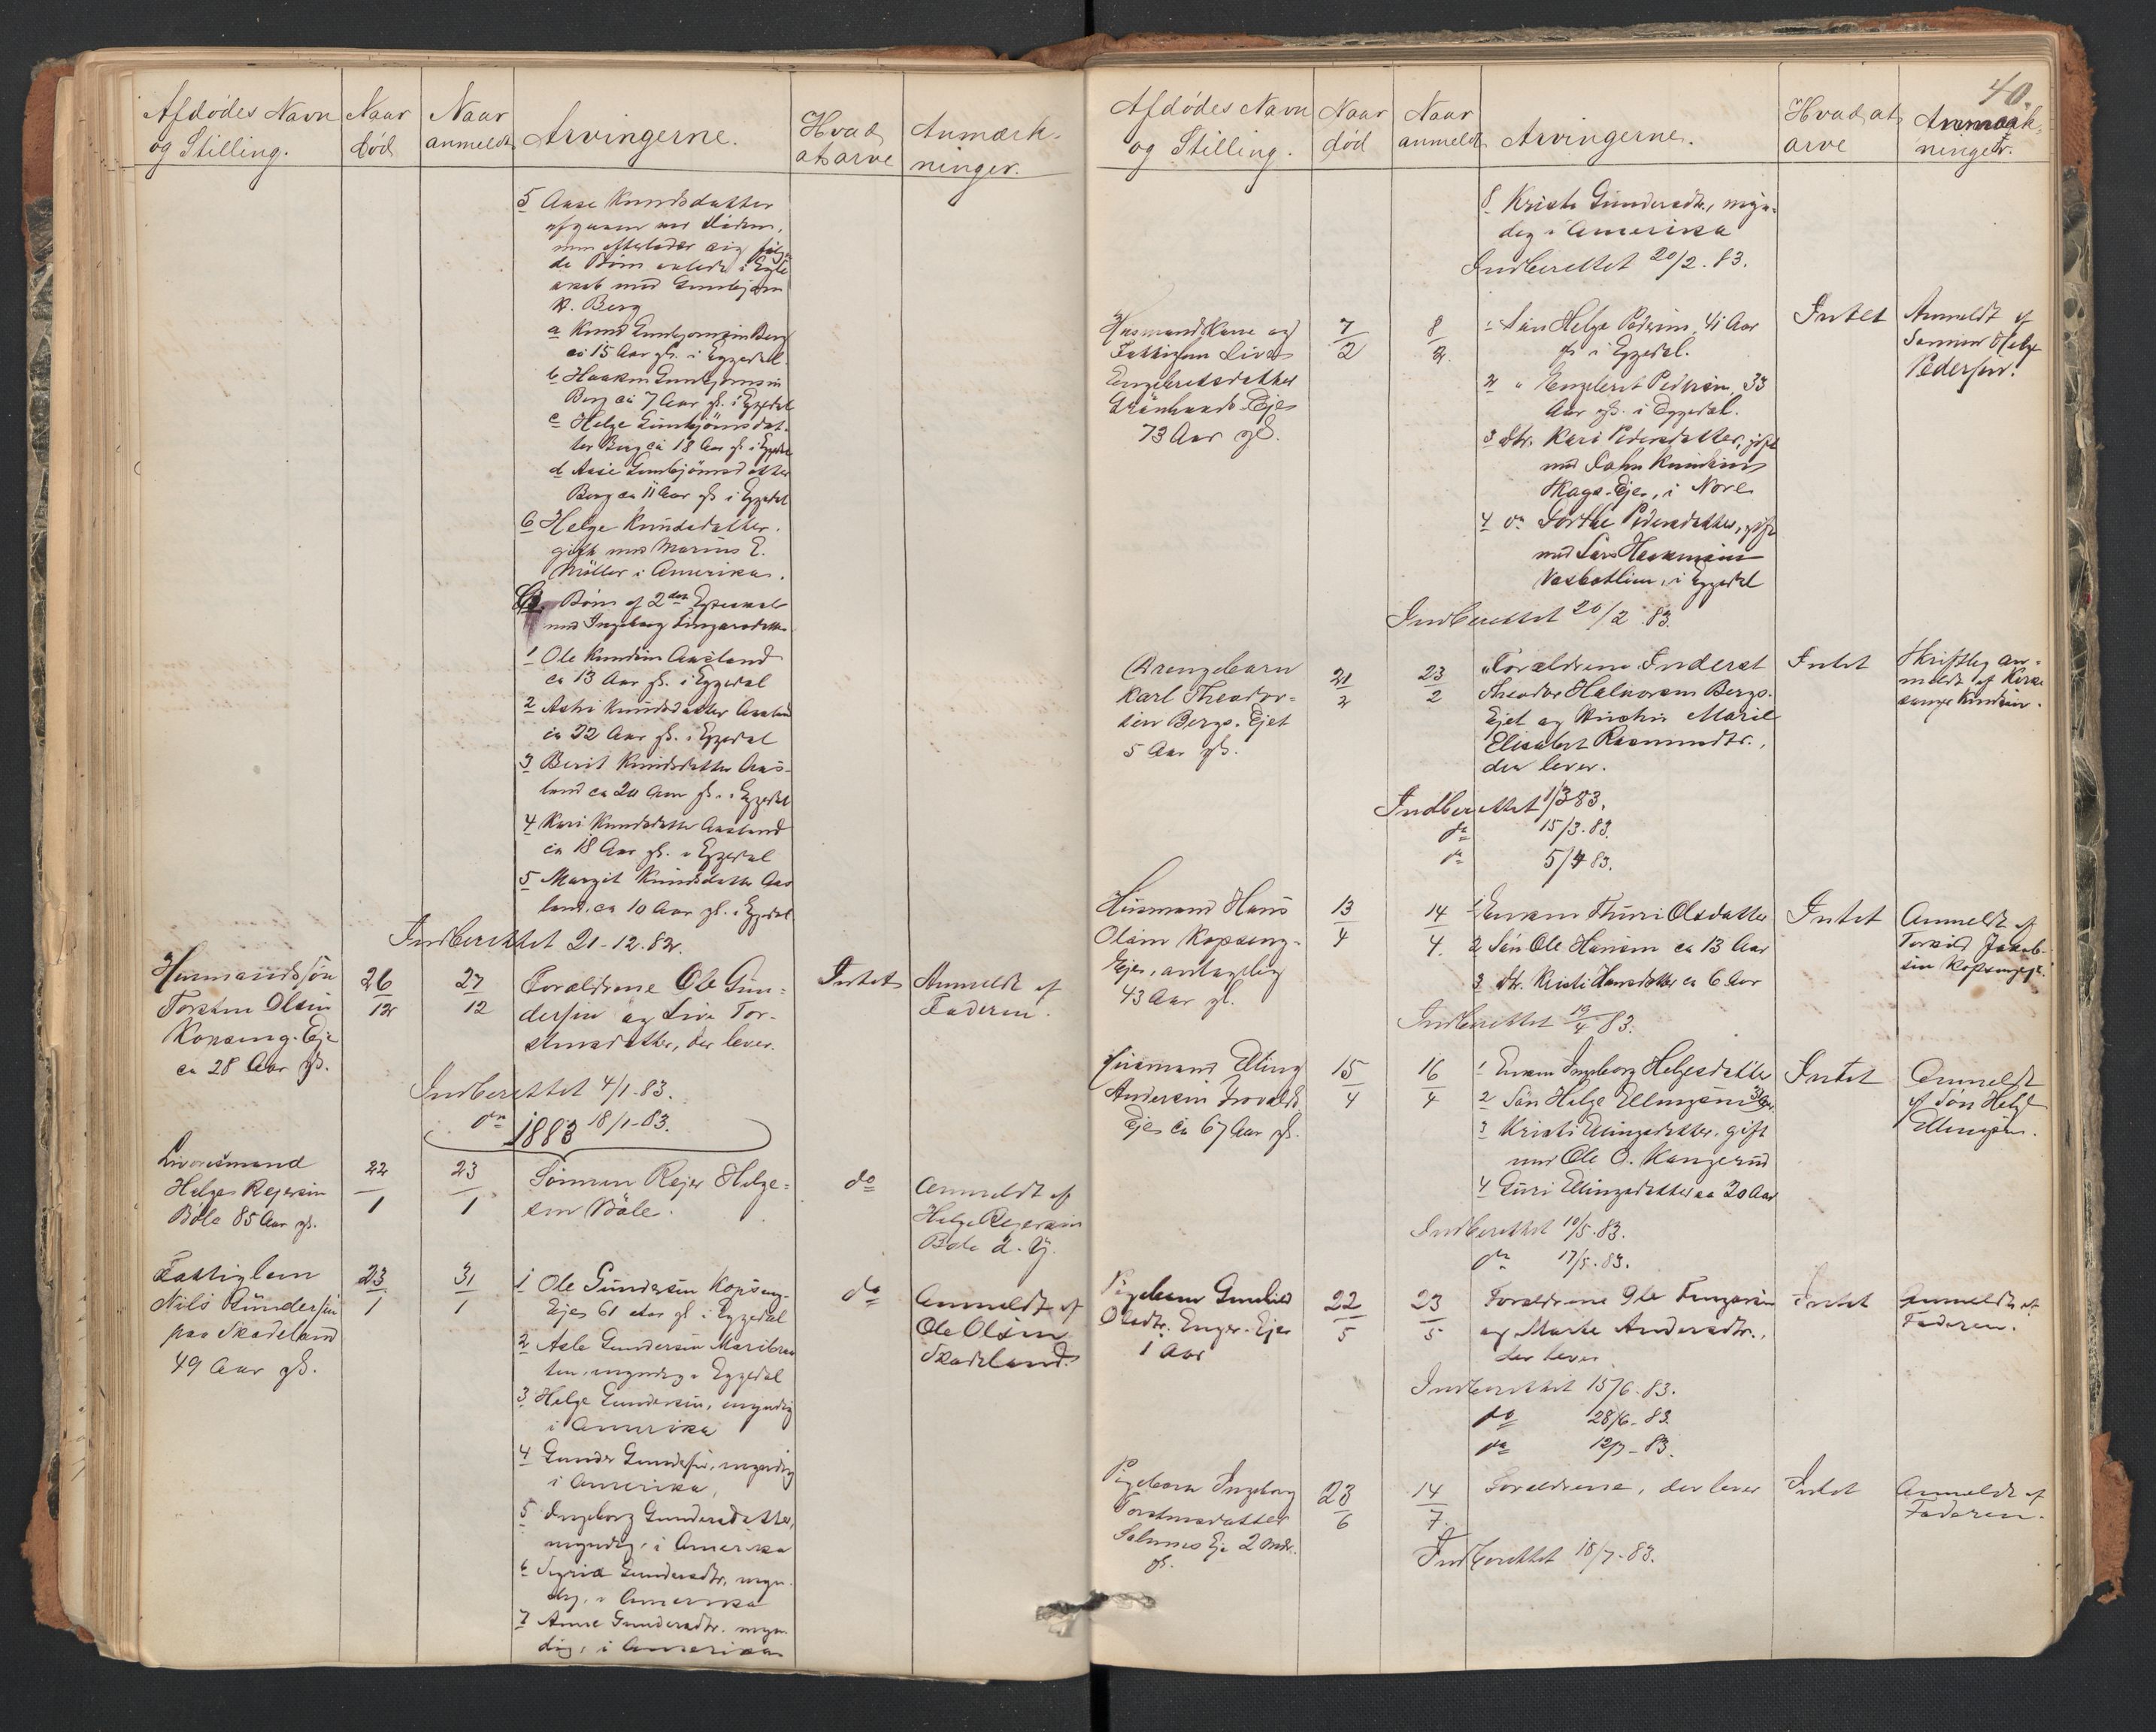 Afdödes Navn
og Stilling.
Naar
död
Naar
anmeldt
Arvingerne.
Hvad
at arve
Anmærk-
ninger.
5 Aase Knudsdatter
afgaaen ved Döden,
men efterlader sig følgen
de Börn avlede i Egte
skab med Gunbjörn
K. Berg
a Knud Gunbjörnsen Berg
ca 15 Aar gl. i Eggedal.
b Haaken Gunbjörnsen
Berg ca 7 Aar gl. i Eggedal
c Helge Gunbjörnsdat-
ter Berg ca 18 Aar gl. i Eggedal
d Aase Gunbjörnsdatter
Berg ca 11 Aar gl. i Eggedal
6 Helge Knudsdatter.
gift med Marius E.
Möller i Amerika.
Börn af 2den Egteskab
med Ingeborg Fingarsdatter
1 Ole Knudsen Aasland
ca 13 Aar gl. i Eggedal
2 Astri Knudsdatter Aasland
ca 22 Aar gl. i Eggedal
3 Berit Knudsdatter Aas-
land ca 20 Aar gl. i Eggedal
4 Kari Knudsdatter Aasland
ca 18 Aar gl. i Eggedal
5 Margit Knudsdatter Aas
land, ca 10 Aar gl. i Eggedal
Indberettet 21-12.82.
Husmandssön
Torsten Olsen
Kopseng-Eje
ca 28 Aar gl.
26
12
27
12
Forældrene Ole Gun-
dersen og Live Tor-
stensdatter, der lever.
Intet
Anmeldt af
Faderen.
Indberettet 4/1-83.
do 18/1-83.
1883
Livöresmand
Helge Rejersen
Böle 85 Aar gl.
22
1
23
1
Sönnen Rejer Helge-
sen Böle.
do
Anmeldt af
Helge Rejersen
Böle d. y.
Fattiglem
Nils Gundersen
paa Skadeland
49 Aar gl.
23
1
31
1
1 Ole Gundersen Kopseng-
Ejet 61 Aar gl. i Eggedal
2 Asle Gundersen Maribraa
ten, myndig i Eggedal
3 Helge Gundersen, myndig
i Amerika
4 Gunder Gundersen, myndig
i Amerika,
5 Ingeborg Gundersdatter,
myndig, i Amerika
6 Sigrid Gundersdtr, myn-
dig, i Amerika
7 Anne Gundersdtr. myn-
dig, i Amerika
do
Anmeldt af
Ole Olsen
Skadeland.
40.
Afdödes Navn
og Stilling.
Naar
död
Naar
anmeldt
Arvingerne.
Hvad at
arve
Anmærk-
ninger.
8 Kristi Gundersdtr., myn-
dig i Amerika
Indberettet 20/2.83.
Husmandskone og
Fattiglem Live
Engebretsdatter
Grönhavd-Ejet
73 Aar gl.
7
2
8
2.
1 Sön Helge Pedersen, 41 Aar
gl. i Eggedal.
2 " Engebret Pedersen, 33
Aar gl. i Eggedal.
3 Dtr. Kari Pedersdatter, gift
med John Knudsen
Skaga-Ejet, i Nore
4 do Dorthe Pedersdatter, gift
med Lars
i Eggedal
Intet
Anmeldt af
Sönnen Helge
Pedersen.
Indberettet 20/2.83.
Drengebarn
Karl Theodor-
sen Bergs-Ejet
5 Aar gl.
21
2
23
2
Forældrene Inderst
Theodor Halvorsen Bergs-
Ejet og Hustru Marie
Elisabet Rasmusdtr.,
der lever.
Intet
Skriftlig an-
meldt af Kirke
sanger Knudsen.
Indberettet 1/3 83.
do 15/3.83.
do 5/4 83.
Husmand Hans
Olsen Kopseng-
Ejet, antagelig
43 Aar gl.
13
4
14
4.
1 Enken Thuri Olsdatter
2 Sön Ole Hansen ca 13 Aar
3 Dtr. Kristi Hansdatter ca 6 Aar
Intet
Anmeldt af
Torkild Jakob-
sen Kopsengejet.
Indberettet 19/4 83.
Husmand Elling
Andersen
Ejet ca 67 Aar gl.
15
4
16
4
1 Enken Ingeborg Helgesdatter
2 Sön Helge Ellingsen
3 Kristi Ellingsdatter, gift
med Ole O. Kangerud
4 Guri Ellingsdatter ca 20 Aar
Intet
Anmeldt
af Sön Helge
Ellingsen.
Indberettet 10/5.83.
do 17/5.83.
Pigebarn Gunhild
Olsdtr. Enger-Ejet
1 Aar
22
5
23
5
Forældrene Ole Fingarsen
og Marte Andersdtr.,
der lever
Intet
Anmeldt af
Faderen.
Indberettet 15/6.83.
do 28/6-83.
do 12/7-83.
Pigebarn Ingeborg
Torstensdatter
Eje 2 Mdr.
gl.
28
6
14
7.
Forældrene, der lever
Intet
Anmeldt af
Faderen.
Indberettet 18/7-83.